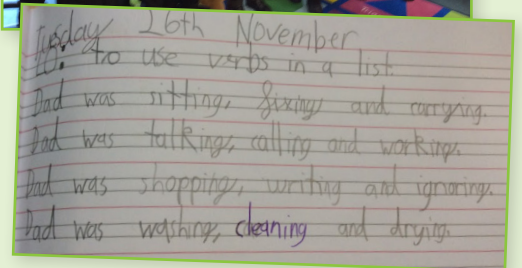 Tuesday 26th November
L.O. to use verbs in a list.
Dad was sitting, fixing and carrying.
Dad was talking, calling and working.
Dad was shopping, writing and ignoring.
Dad was washing, cleaning and drying.